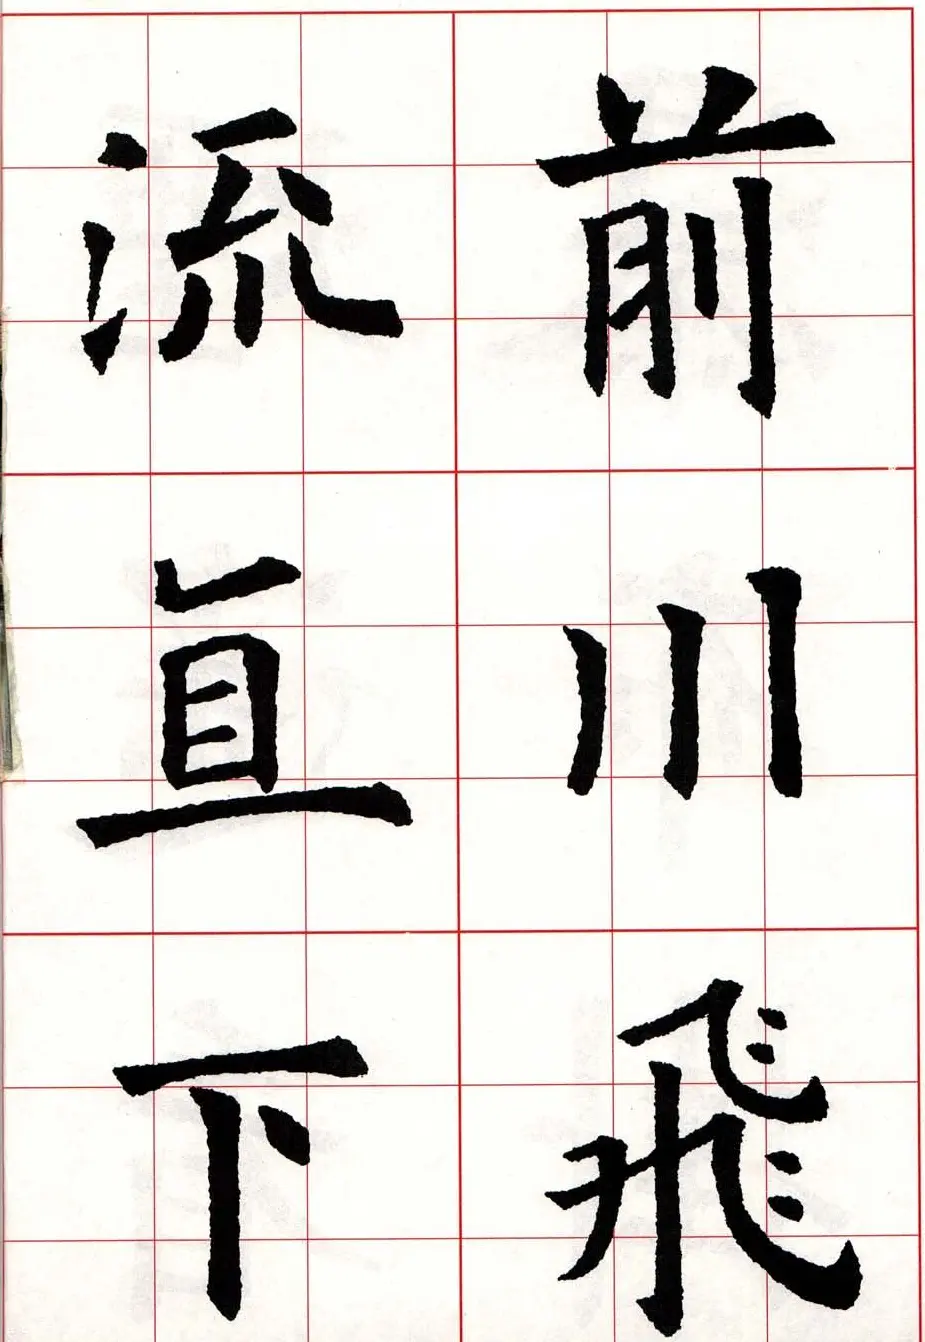 前川飛
流直下